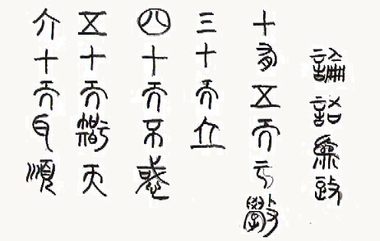 論語為政
十有五而于學
三十而立
四十而不惑
五十而智天
六十而耳順